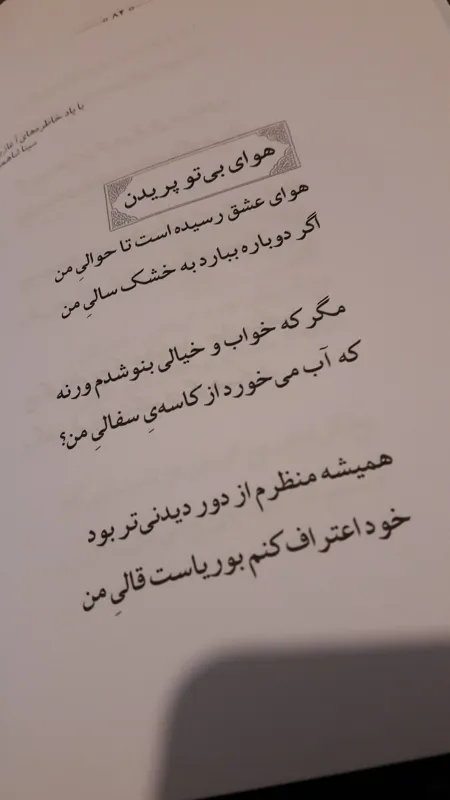 ۸۲
با یاد خاطره‌های
سینا
هوای بی‌تو پریدن
هوای عشق رسیده است تا حوالیِ من
اگر دوباره ببارد به خشک سالیِ من
مگر که خواب و خیالی بنوشدم ورنه
که آب می‌خورد از کاسه‌یِ سفالیِ من؟
همیشه منظرم از دور دیدنی‌تر بود
خود اعتراف کنم بوریاست قالیِ من